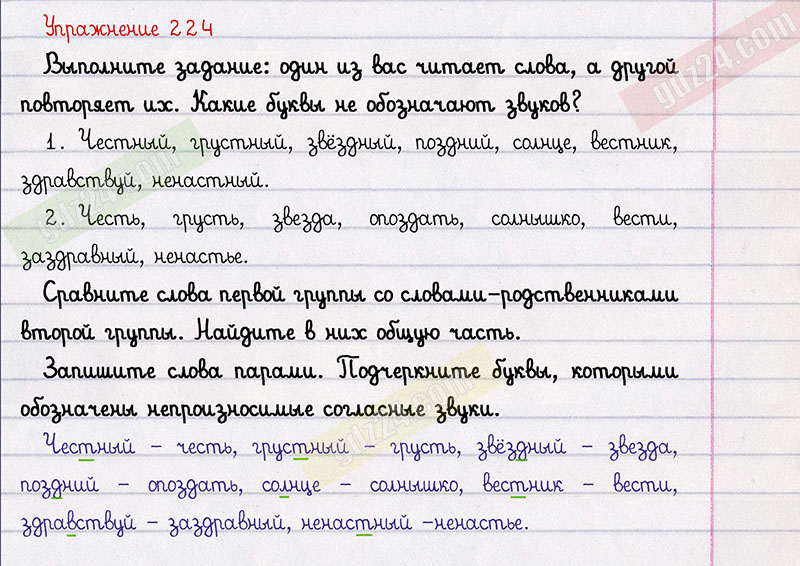 Упражнение 224
Выполните задание: один из вас читает слова, а другой
повторяет их. Какие буквы не обозначают звуков?
1. Честный, грустный, звёздный, поздний, солнце, вестник,
здравствуй, ненастный.
2. Честь, грусть, звезда, опоздать, солнышко, вести,
заздравный, ненастье.
Сравните слова первой группы со словами-родственниками
второй группы. Найдите в них общую часть.
Запишите слова парами. Подчеркните буквы, которыми
обозначены непроизносимые согласные звуки.
Честный – честь, грустный – грусть, звёздный – звезда,
поздний – опоздать, солнце – солнышко, вестник – вести,
здравствуй – заздравный, ненастный –ненастье.
gdz24.com
gdz24.com
gdz24.com